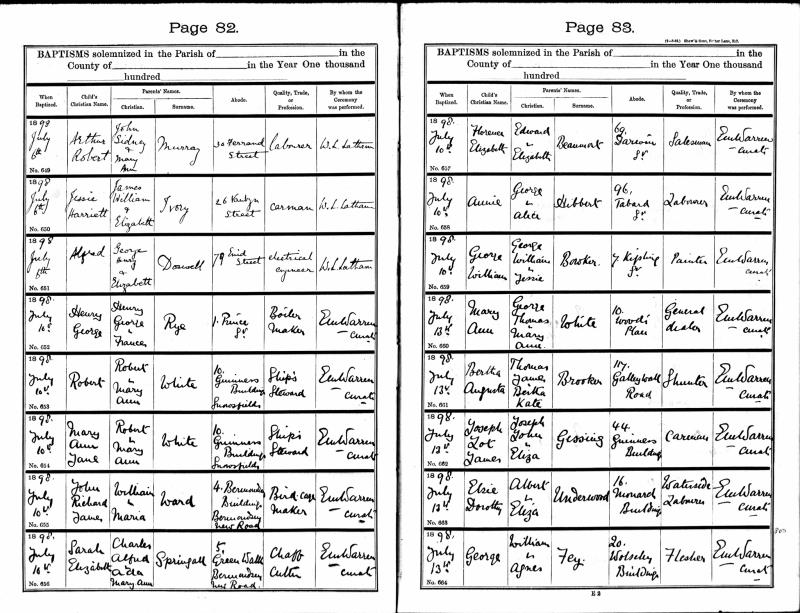 Page 82.
BAPTISMS solemnized in the Parish of in the
County of in the Year One thousand
hundred
When Baptized. Child's Christian Name. Parents' Names. Christian. Surname. Abode. Quality, Trade, or Profession. By whom the Ceremony was performed.
1898 July 6th No. 649 Arthur Robert John Sidney Mary Ann Murray Street Labourer W. L. Latham
1898 July 6th No. 650 Jessie Harriett James William & Elizabeth Ivory 26 Street Carman W. L. Latham
1898 July 6th No. 651 Alfred George & Elizabeth Doswell 79 Enid Street electrical engineer W. L. Latham
1898. July 10th No. 652 Henry George Henry George & Frances Rye 1. Prince St. Boiler Maker Warren curate
1898. July 10th No. 653 Robert Robert & Mary Ann White 10. Guinness Buildings Snowsfields Ship's Steward Warren curate
1898. July 10th No. 654 Mary Ann Jane Robert & Mary Ann White 10. Guinness Buildings Snowsfields Ship's Steward Warren curate
1898. July 10th No. 655 John Richard James William & Maria Ward 4. Bermondsey Buildings Bermondsey New Road Bird-cage Maker Warren curate
1898. July 10th No. 656 Sarah Elizabeth Charles Alfred Ada Mary Ann Springall 5. Green Walk Bermondsey New Road. Chaff Cutter Warren curate
Page 83.
BAPTISMS solemnized in the Parish of in the
County of in the Year One thousand
hundred
When Baptized. Child's Christian Name. Parents' Names. Christian. Surname. Abode. Quality, Trade, or Profession. By whom the Ceremony was performed.
1898. July 10th No. 657 Florence Elizabeth Edward & Elizabeth Beaumont 69. Darwin St. Salesman Warren curate
1898. July 10th No. 658 Annie George & Alice Hibbert 96. Tabard St. Labourer Warren curate
1898. July 10th No. 659 George William George William & Jessie Bowker. 7. Kipling St. Painter Warren curate
1898. July 13th No. 660 Mary Ann George Thomas & Mary Ann. White 10. Wood's Place General dealer Warren curate
1898. July 13th No. 661 Bertha Augusta Thomas James Bertha Kate Brooker 107. Galleywall Road Shunter Warren curate
1898. July 13th No. 662 Joseph Lot James Joseph John & Eliza Gessing 44. Guinness Buildings Carman Warren curate
1898. July 13th No. 663 Elsie Dorothy Albert & Eliza Underwood 16. Monard Buildings Waterside Labourer Warren curate
1898. July 13th No. 664 George William & Agnes Fey. 20. Wolseley Buildings Flesher Warren curate
E 2